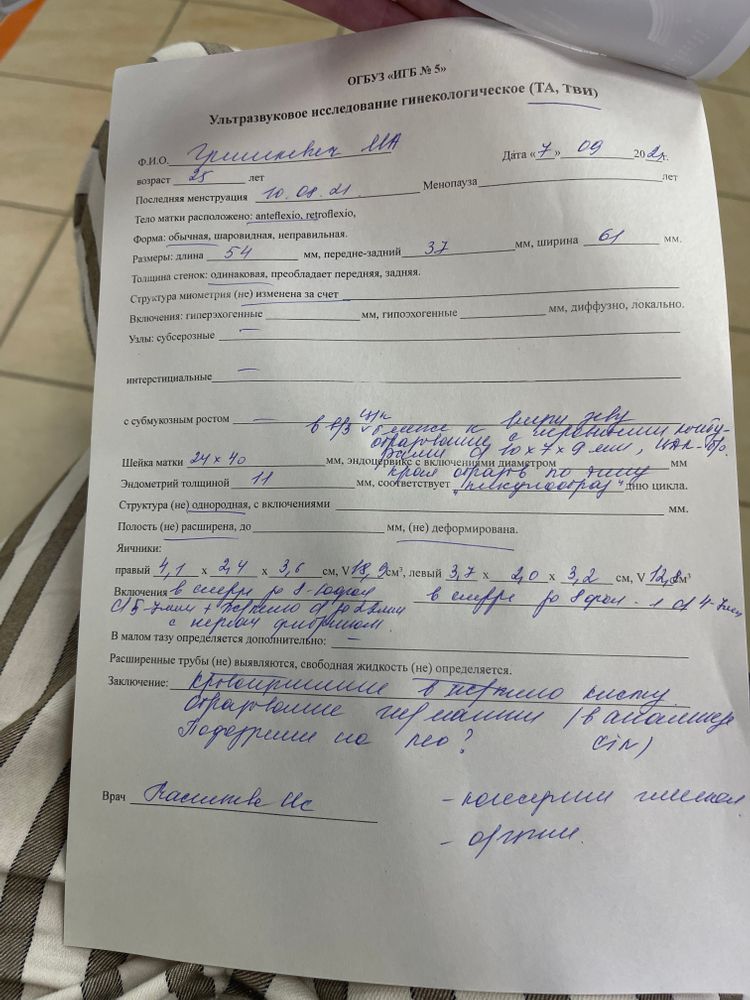 ОГБУЗ «ИГБ № 5»
Ультразвуковое исследование гинекологическое (ТА, ТВИ)
Ф.И.О. Дата «7» 09 2021г.
возраст 25 лет
Последняя менструация 10.08.21. Менопауза лет
Тело матки расположено: anteflexio, retroflexio,
Форма: обычная, шаровидная, неправильная.
Размеры: длина 54 мм, передне-задний 37 мм, ширина 61 мм.
Толщина стенок: одинаковая, преобладает передняя, задняя.
Структура миометрия (не) изменена за счет
Включения: гиперэхогенные мм, гипоэхогенные мм, диффузно, локально.
Узлы: субсерозные —
интерстициальные —
с субмукозным ростом — в ближе к зеву
образование с неровными
d 10 х 7 х 9 мм,
Шейка матки 24 х 40 мм, эндоцервикс с включениями диаметром мм
края по типу
Эндометрий толщиной 11 мм, соответствует дню цикла.
Структура (не) однородная, с включениями мм.
Полость (не) расширена, до мм, (не) деформирована.
Яичники:
правый 4,1 х 2,4 х 3,6 см, V 18,9 см³, левый 3,7 х 2,0 х 3,2 см, V 12,8 см³
Включения в срезе до 8-10 фол в срезе до 8 фол. d 4-7мм
d 5-7мм + до
с
В малом тазу определяется дополнительно: —
Расширенные трубы (не) выявляются, свободная жидкость (не) определяется.
Заключение: Кровоизлияние в кисту
Образование шейки матки (в анамнезе
Подозрение на neo? cin)
Врач
-
-